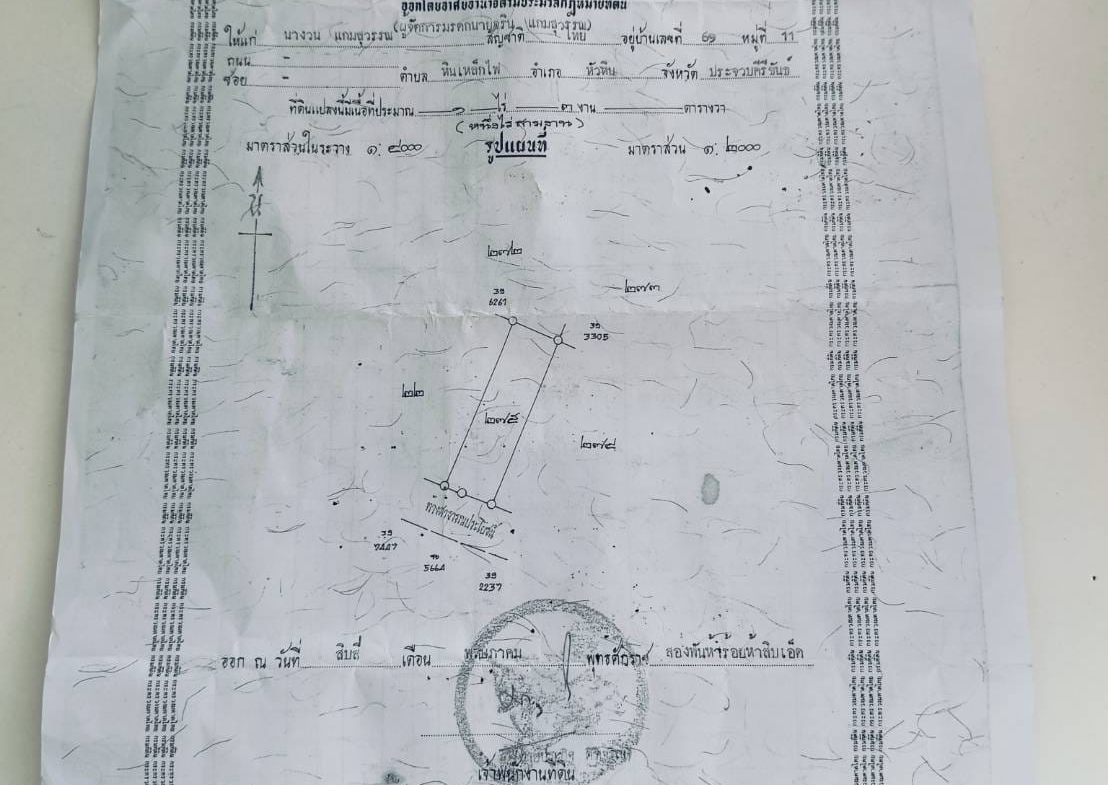 ออกโดยอาศัยอำนาจตามประมวลกฎหมายที่ดิน
(ผู้จัดการมรดกนาบุญริน (แถมสุวรรณ)
ให้แก่ นางวน แถมสุวรรณ สัญชาติ ไทย อยู่บ้านเลขที่ 69 หมู่ที่ 11
ถนน -
ซอย - ตำบล หินเหล็กไฟ อำเภอ หัวหิน จังหวัด ประจวบคีรีขันธ์
ที่ดินแปลงนี้มีเนื้อที่ประมาณ ๑ ไร่ ๓ งาน ตารางวา
(หนึ่งไร่สามงาน)
มาตราส่วนในระวาง ๑:๔๐๐๐ รูปแผนที่ มาตราส่วน ๑:๒๐๐๐
น
๒๗๒
๒๗๓
39
6261
39
3305
๒๒
๒๗๕
๒๗๔
ทางสาธารณประโยชน์
39
7447
40
5664
39
2237
ออก ณ วันที่ สิบสี่ เดือน พฤษภาคม พุทธศักราช สองพันห้าร้อยห้าสิบเอ็ด
เจ้าพนักงานที่ดิน